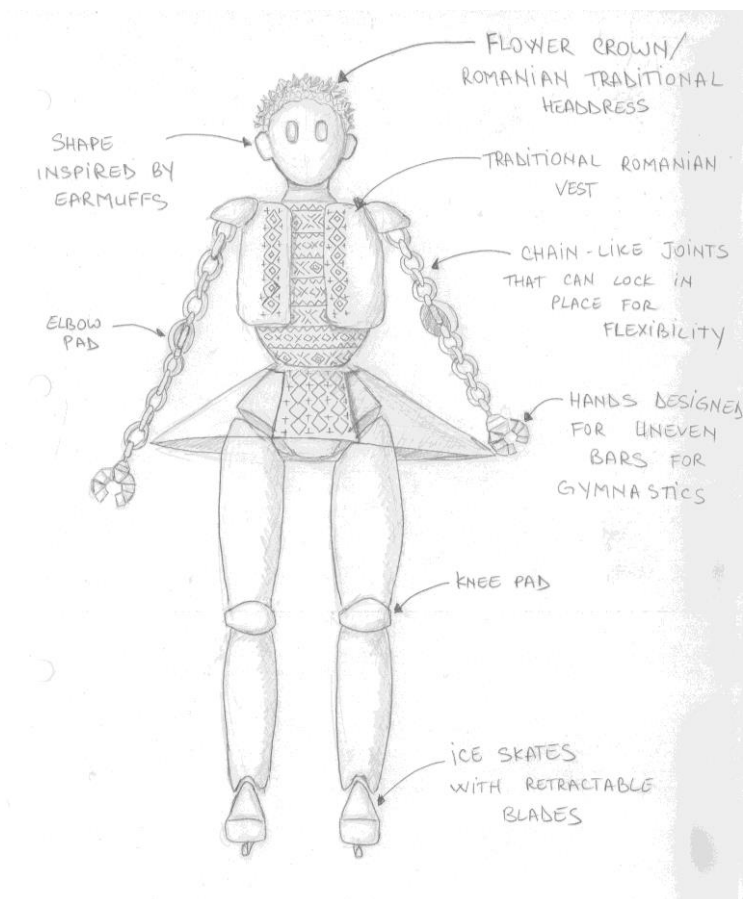 FLOWER CROWN/
ROMANIAN TRADITIONAL
HEADDRESS
SHAPE
INSPIRED BY
EARMUFFS
TRADITIONAL ROMANIAN
VEST
CHAIN-LIKE JOINTS
THAT CAN LOCK IN
PLACE FOR
FLEXIBILITY
ELBOW
PAD
HANDS DESIGNED
FOR UNEVEN
BARS FOR
GYMNASTICS
KNEE PAD
ICE SKATES
WITH RETRACTABLE
BLADES